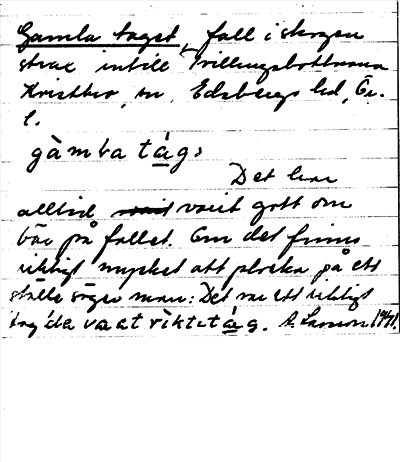 Gamla taget, fall i skogen
strax intill Trillingsbottnarna
Kvistbro sn, Edsbergs hd, Ör.
l.
gàmba tág:
Det har
alltid varit gott om
bär på fallet. Om det finns
riktigt mycket att plocka på ett
ställe säger man: Det var ett riktigt
tag 'da va at ríktitág. A. Larsson 1971.